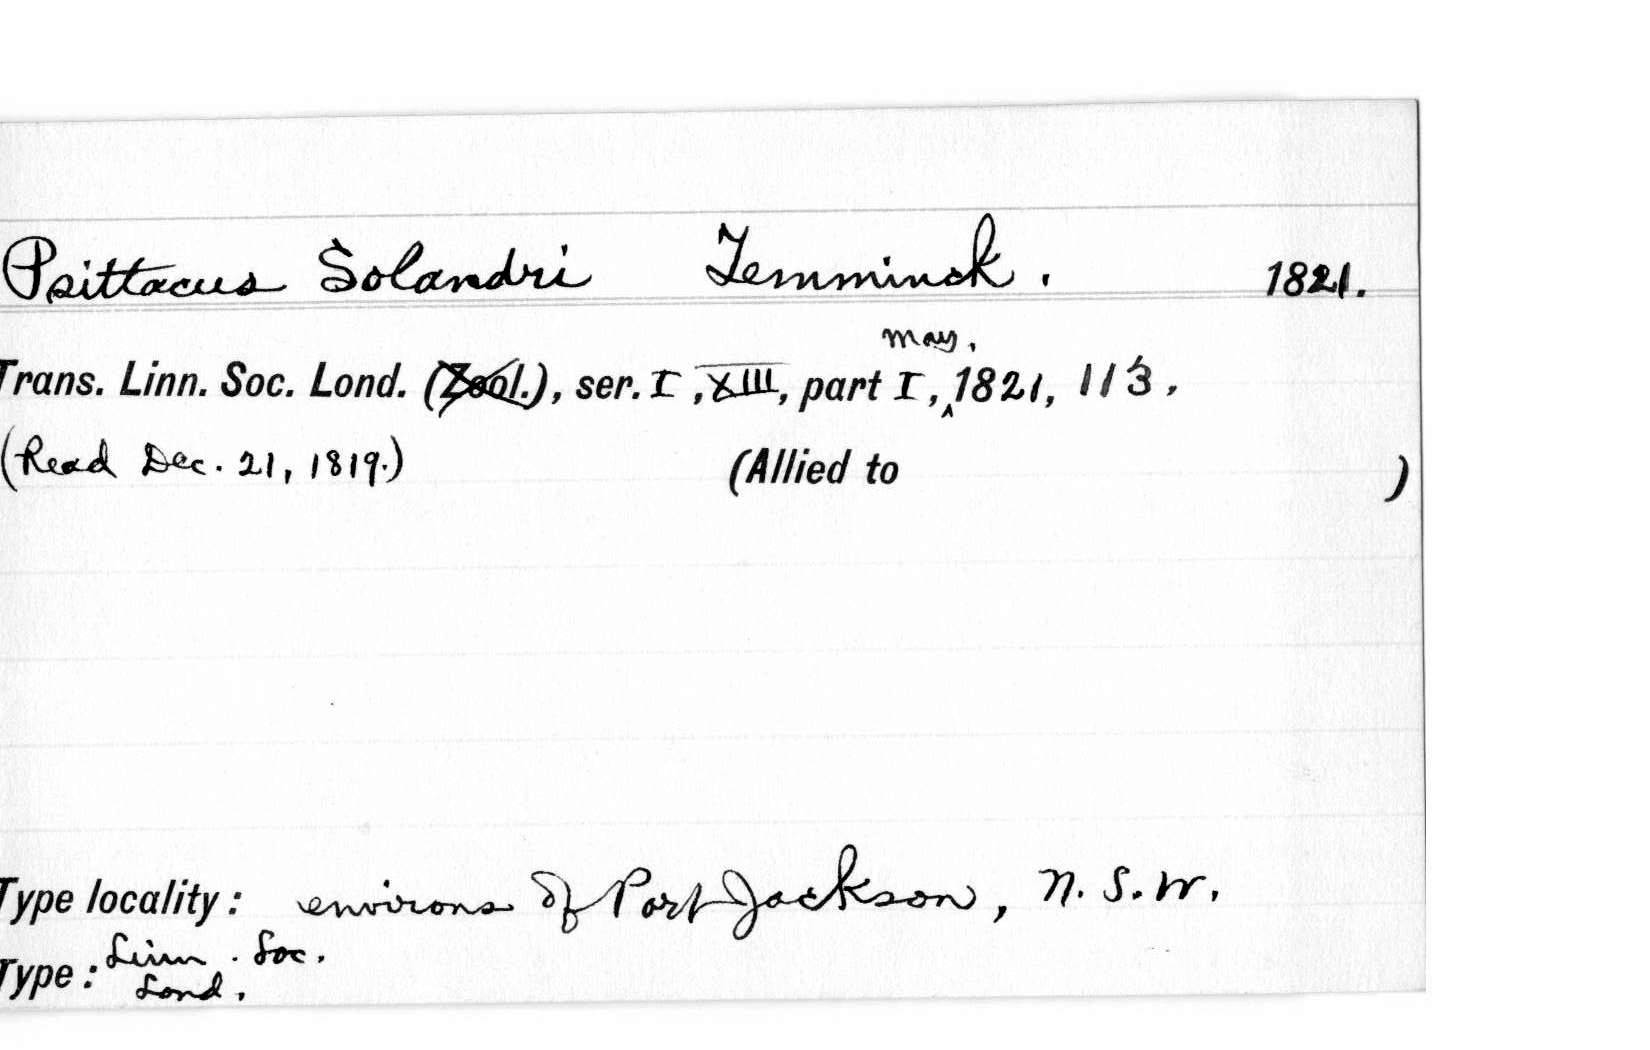 Psittacus Solandri Temminck. 1821.
May,
Trans. Linn. Soc. Lond. (Zool.), ser. I, XIII, part I, ‸1821, 113,
(Read Dec. 21, 1819.) (Allied to )
Type locality: environs of Port Jackson, N. S. W.
Type: Linn. Soc.
Lond.